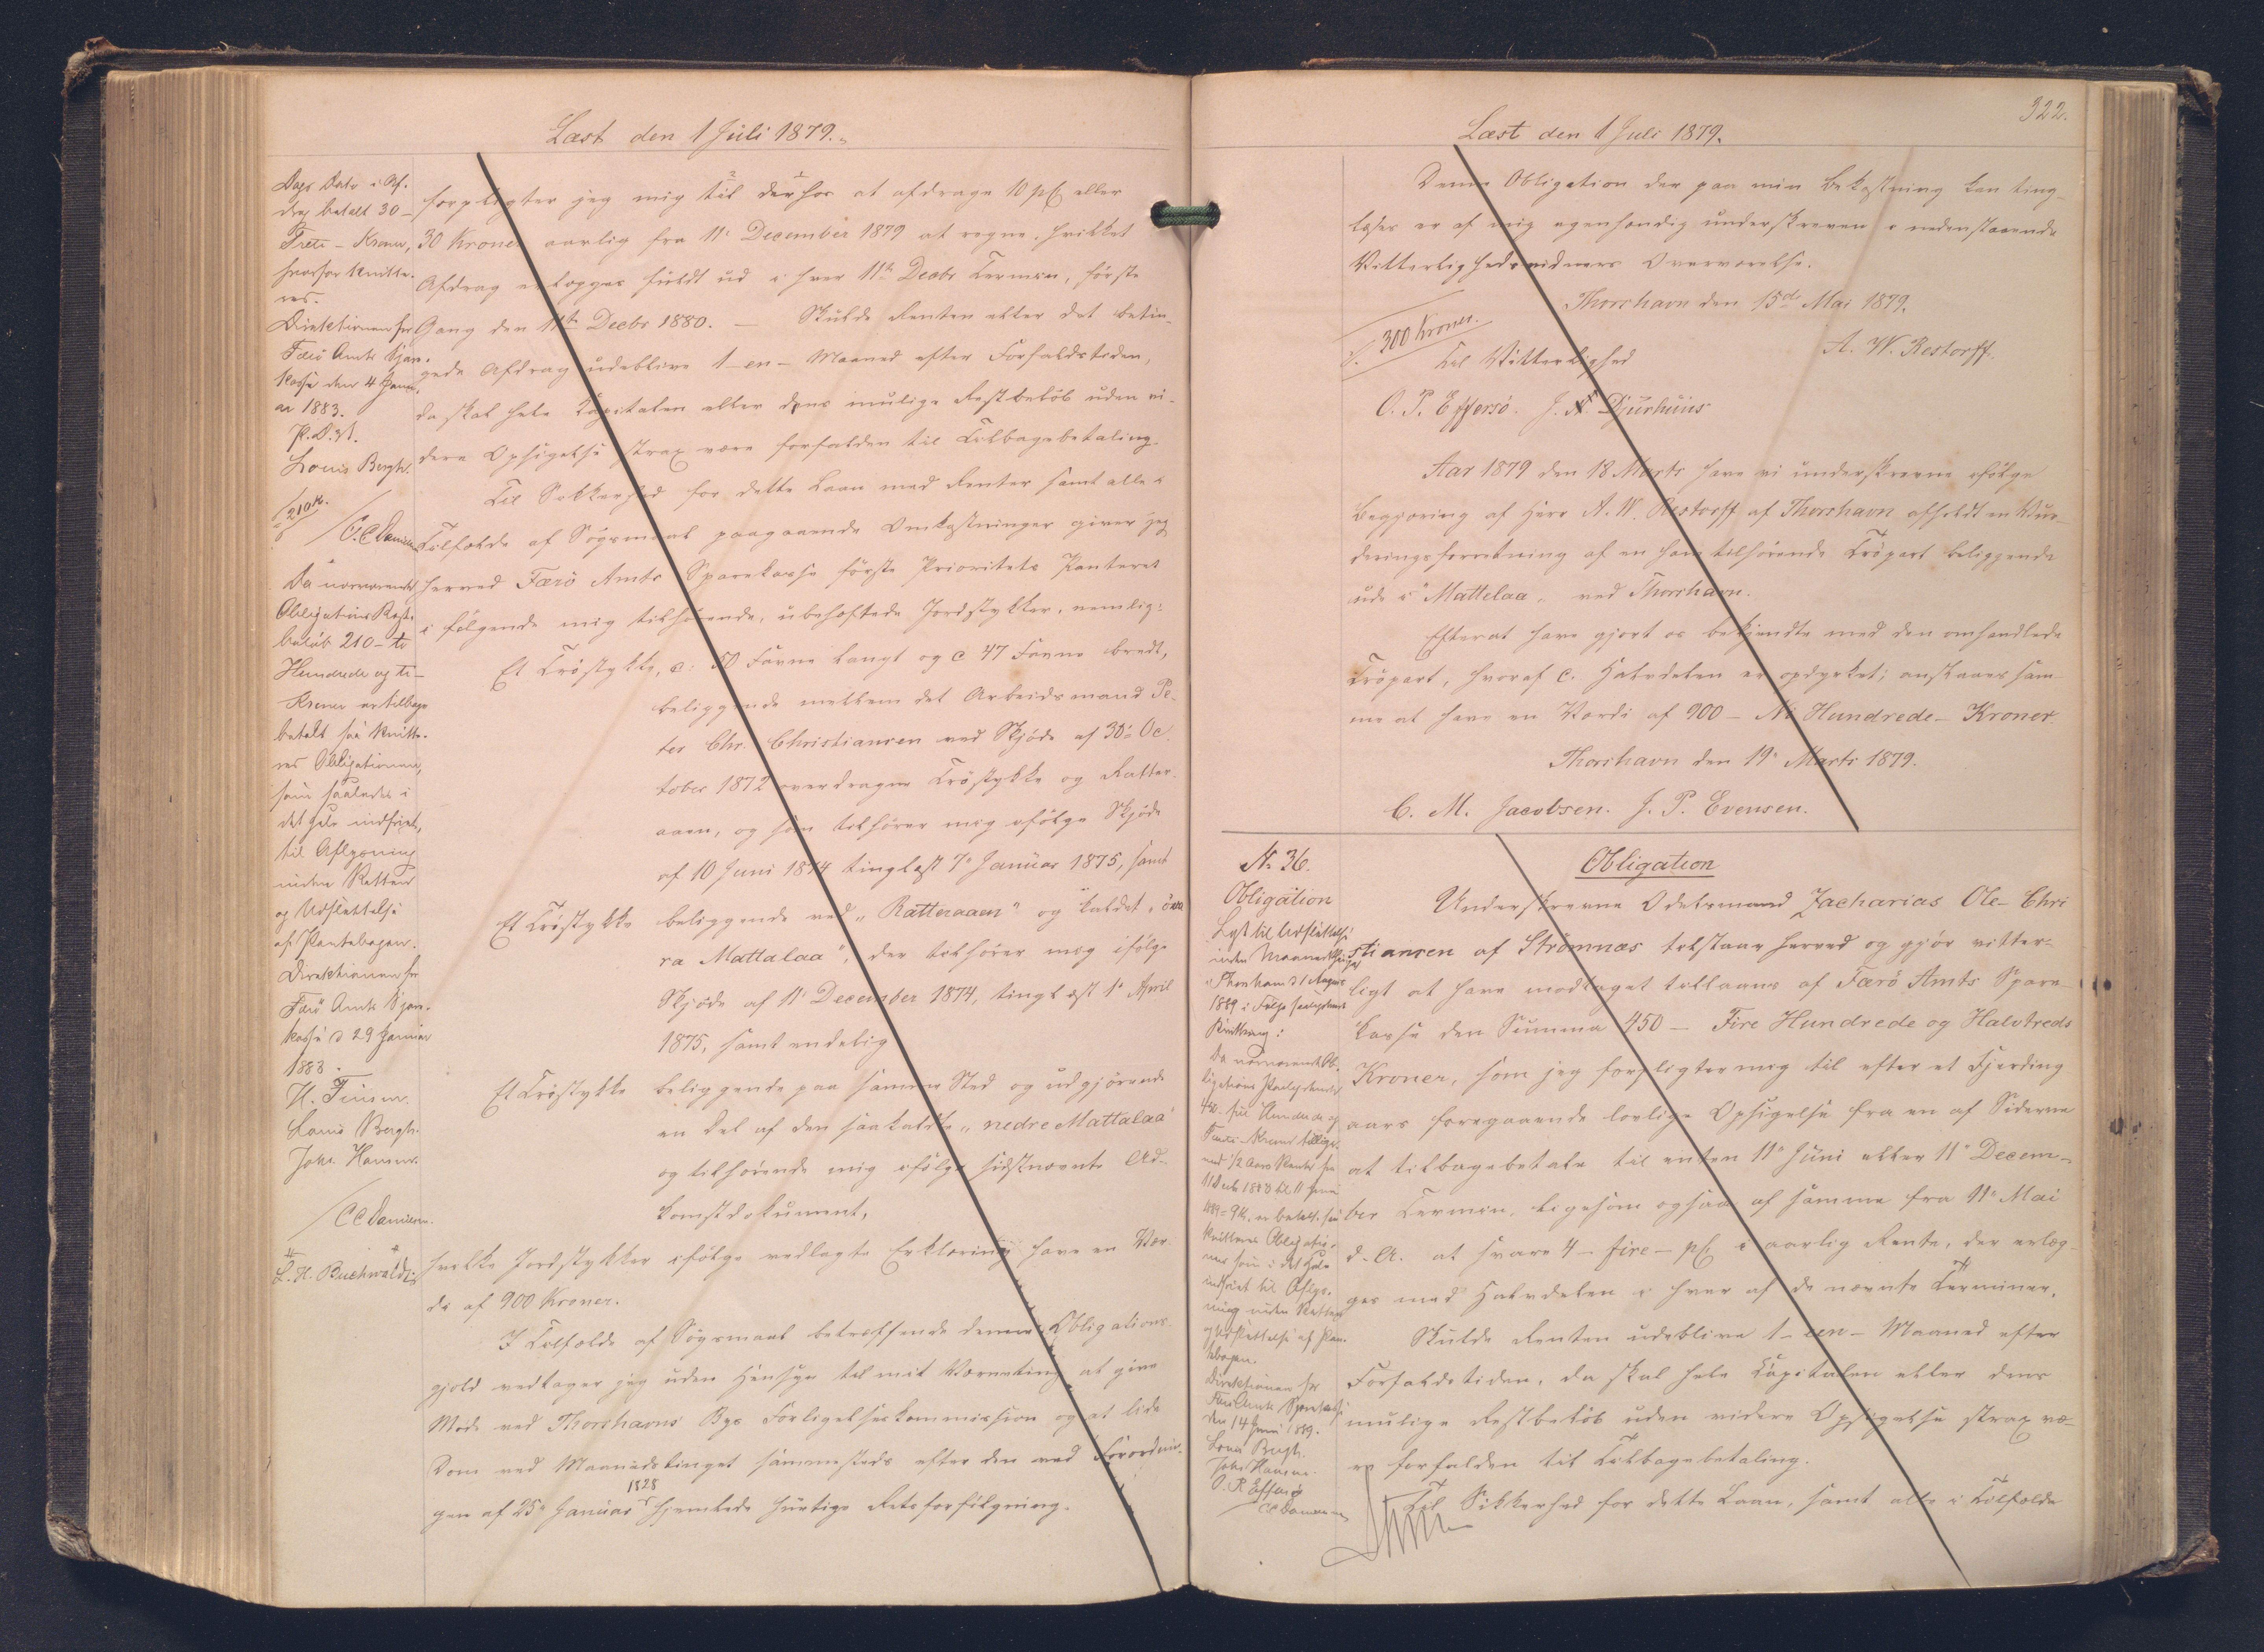 Læst den 1 Juli 1879.
Dags Dato i Af-
drag betalt 30 -
Treti - Kroner,
hvorfor kvitte-
res.
Direktionen for
Færö Amts Spare-
kasse den 4 Janu-
ar 1883.
Louis Bergh.
210 K.
C. C. Danielsen
Da nærværende
Obligations Rest-
beløb 210 - to
Hundrede og ti -
Kroner er tilbage
betalt saa kvitte-
res Obligationen,
som saaledes i
det Hele indfriet,
til Aflysning
inden Retten
og Udslettelse
af Pantebogen.
Direktionen for
Færö Amts Spare-
kasse d 29 Januar
1883.
H. Finsen.
Louis Bergh.
Johs. Hansen.
C C Danielsen.
L. H. Buchwaldt
forpligter jeg mig til derhos at afdrage 10 pCt eller
30 Kroner aarlig fra 11te December 1879 at regne, hvilket
Afdrag erlægges fuldt ud i hver 11te Decbr Termin, første
Gang den 11te Decbr 1880. — Skulde Renten eller det betin-
gede Afdrag udeblive 1 - en - Maaned efter Forfaldstiden,
da skal hele Kapitalen eller dens mulige Restbeløb uden vi-
dere Opsigelse strax være forfalden til Tilbagebetaling.
Til Sikkerhed for dette Laan med Renter samt alle i
Tilfælde af Søgsmaal paagaaende Omkostninger giver jeg
herved Færö Amts Sparekasse første Prioritets Panteret
i følgende mig tilhørende, ubehæftede Jordstykker, nemlig:
Et Tröstykke, c: 50 Favne langt og c 47 Favne bredt,
beliggende mellem det Arbeidsmand Pe-
ter Chr. Christiansen ved Skjøde af 30te Oc-
tober 1872 overdragne Tröstykke og Ratter-
aaen, og som tilhører mig ifølge Skjøde
af 10 Juni 1874 tinglæst 7de Januar 1875, samt
Et Tröstykke beliggende ved "Ratteraaen" og kaldet "öve
ra Mattalaa", der tilhører mig ifølge
Skjøde af 11te December 1874, tinglæst 1te April
1875, samt endelig
Et Tröstykke beliggende paa samme Sted og udgjørende
en Del af den saakaldte "nedre Mattalaa"
og tilhørende mig ifølge sidstnævnte Ad-
komstdokument,
hvilke Jordstykker ifølge vedlagte Erklæring have en Vær-
di af 900 Kroner.
I Tilfælde af Søgsmaal betræffende denne Obligations-
gjæld vedtager jeg uden Hensyn til mit Værneting at give
Møde ved Thorshavns Byes Forligelseskommission og at lide
Dom ved Maanedstinget sammesteds efter den ved Forordnin-
gen af 25de Januar 1828 hjemlede hurtige Retsforfølgning.
322.
Læst den 1 Juli 1879.
Denne Obligation der paa min Bekostning kan ting-
læses er af mig egenhændig underskreven i nedenstaaende
Vitterlighedsvidners Overværelse.
Thorshavn den 15de Mai 1879.
300 Kroner.
A. W. Restorff.
Til Vitterlighed
O. P. Effersö. J. Djurhuus
Aar 1879 den 18 Marts have vi underskrevne ifølge
Begjæring af Herr A. W. Restorff af Thorshavn afholdt en Vur-
deringsforretning af en ham tilhørende Tröpart beliggende
ude i "Mattelaa" ved Thorshavn.
Efterat have gjort os bekjendte med den omhandlede
Tröpart, hvoraf c. Halvdelen er opdyrket; ansktaaes sam-
me at have en Værdi af 900 - Ni Hundrede - Kroner.
Thorshavn den 19de Marts 1879.
C. M. Jacobsen. J. P. Evensen.
No 36.
Obligation
Lyst til Udslettelse
inden
Thorshavn 31 August
1889 i Følge saalydende
Kvittering:
Da nærværende Ob-
ligations Paalydende
450 fire Hundrede og
Kroner tillige-
med 1/2 Aars Rente fra
11 Decb 1888 til 11 Juni
1889 = 9 K, er betalt, saa
kvitteres Obligatio-
nen som i det Hele
indfriet til Aflys-
ning inden Retten
og Udslettelse af Pan-
tebogen.
Direktionen for
Færö Amts Sparekasse
den 14 Juni 1889.
Louis Bergh.
Johs Hansen.
O. P. Effersö
C C Danielsen
Obligation
Underskrevne Odelsmand Zacharias Ole - Chri
stiansen af Strömnæs tilstaar herved og gjør vitter-
ligt at have modtaget tillaans af Færö Amts Spare-
kasse den Summa 450 - Fire Hundrede og Halvtreds
Kroner, som jeg forpligter mig til efter et Fjerding
aars foregaaende lovlige Opsigelse fra en af Siderne
at tilbagebetale til enten 11te Juni eller 11te Decem-
ber Termin, ligesom ogsaa af samme fra 11te Mai
d. A. at svare 4 - fire - pCt i aarlig Rente, der erlæg-
ges med Halvdelen i hver af de nævnte Terminer.
Skulde Renten udeblive 1 - een - Maaned efter
Forfaldstiden, da skal hele Kapitalen eller dens
mulige Restbeløb uden videre Opsigelse strax væ-
re forfalden til Tilbagebetaling.
Til Sikkerhed for dette Laan, samt alle i Tilfælde